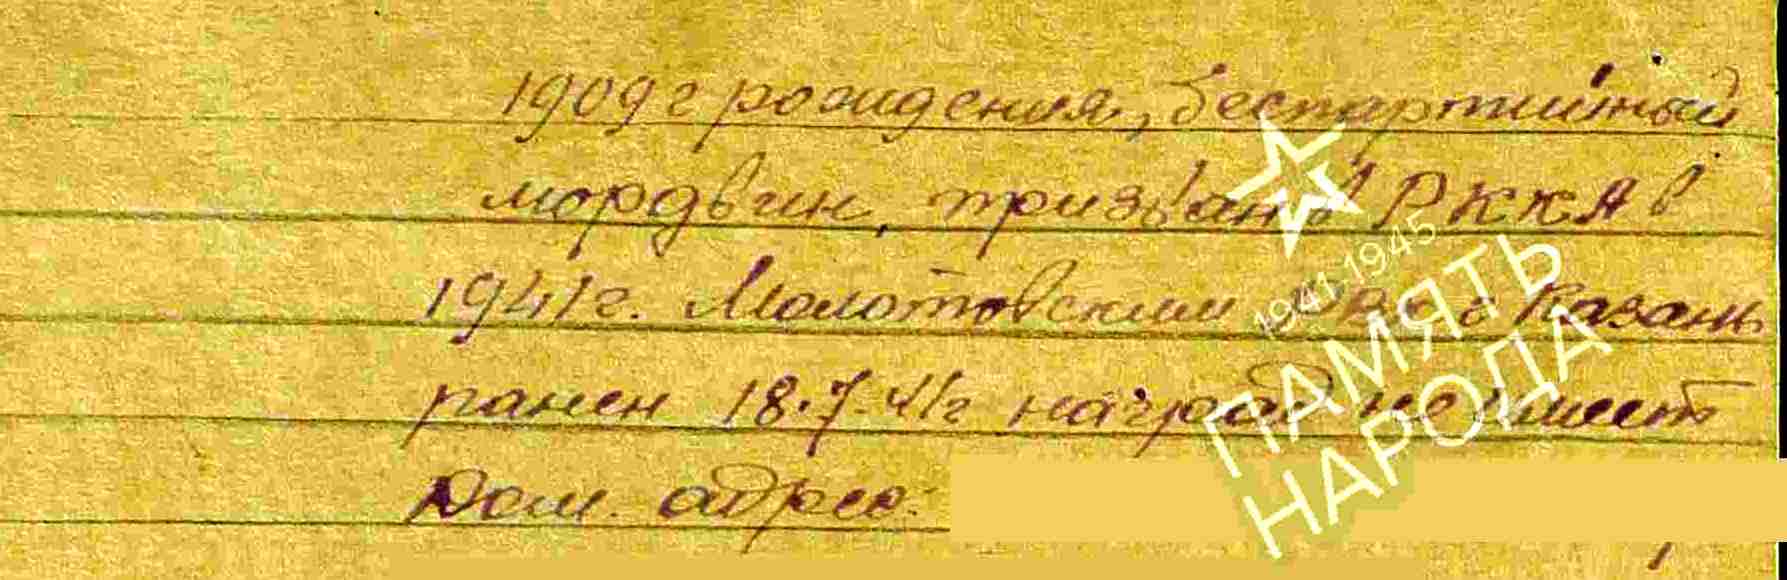 1909 г рождения, беспартийный
мордвин, призван в РККА в
1941 г. Молотовским РВК г Казань
ранен 18.7.41г наград не имеет
Дом. адрес:
1941-1945
ПАМЯТЬ
НАРОДА